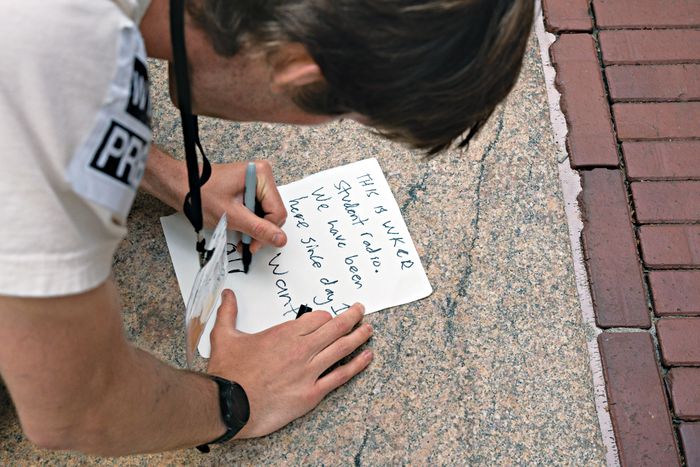 W
PRE
THIS IS WKCR
Student radio.
We have been
here since day 1
want
all